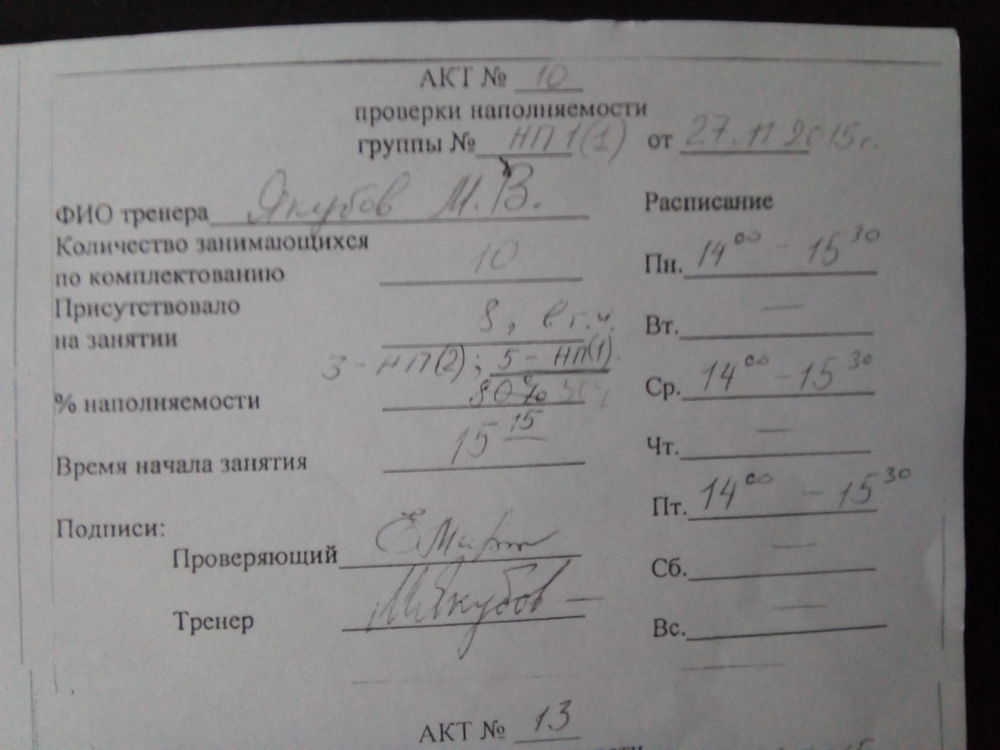 АКТ № 10
проверки наполняемости
группы № НП1(1) от 27.11 2015г.
ФИО тренера Якубов М.В.
Количество занимающихся
по комплектованию 10
Присутствовало
на занятии 8, в т.ч.
3 - НП(2); 5 - НП(1)
% наполняемости 80%
Время начала занятия 15 15
Подписи:
Проверяющий
Тренер МЯкубов
Расписание
Пн. 14 00 - 15 30
Вт. —
Ср. 14 00 - 15 30
Чт. —
Пт. 14 00 - 15 30
Сб. —
Вс. —
АКТ № 13